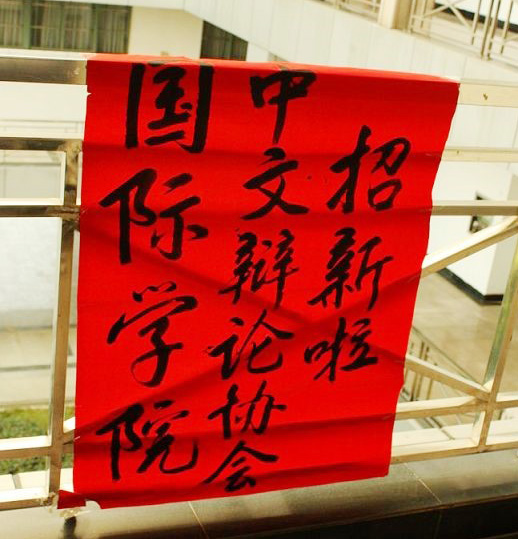 国际学院
中文辩论协会
招新啦